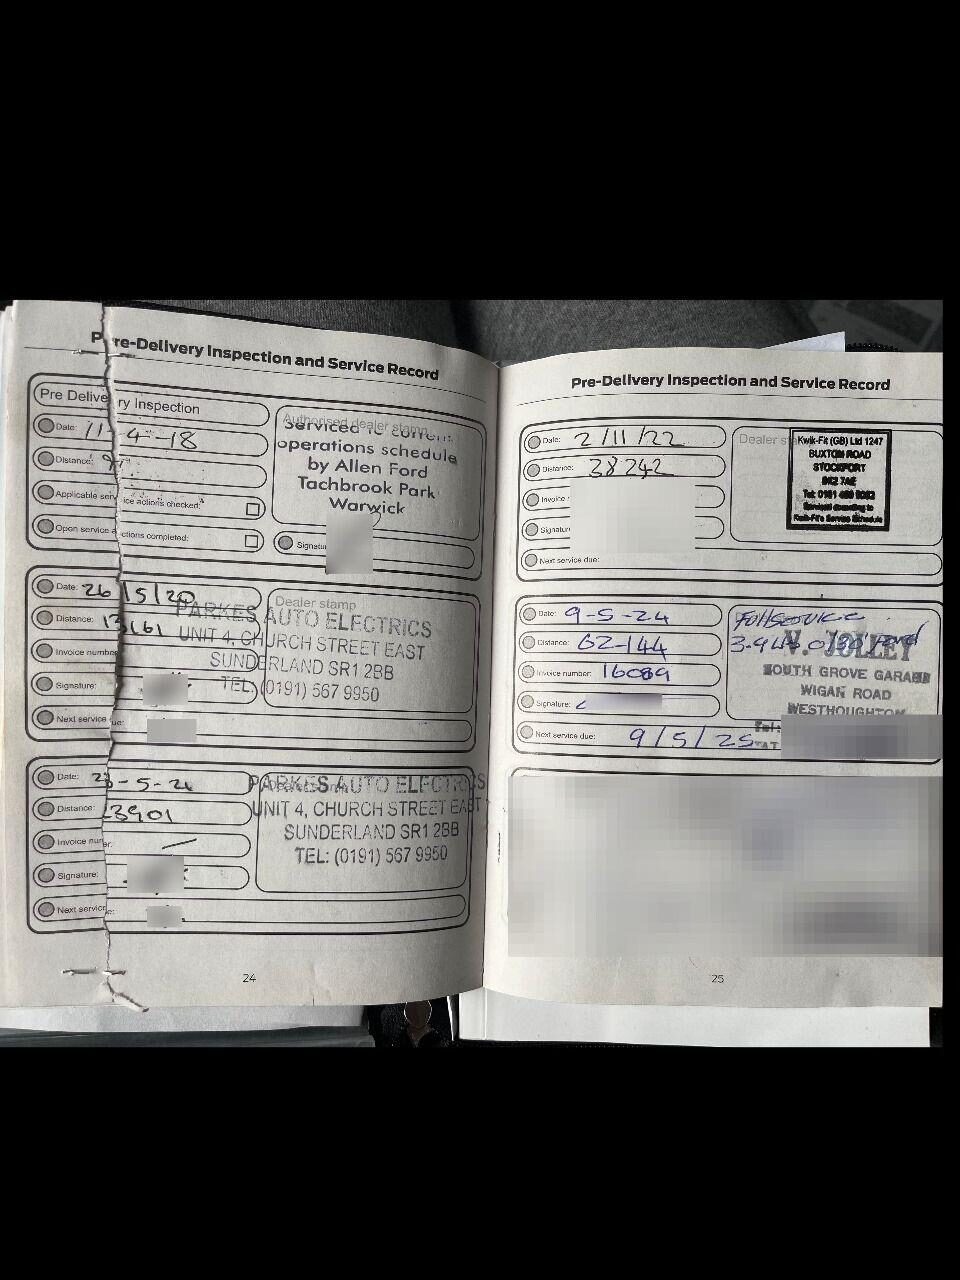 Pre-Delivery Inspection and Service Record
Pre Delivery Inspection
Date: 11-4-18
Distance:
Applicable service actions checked:
Open service actions completed:
Authorised dealer stamp
Serviced to current
operations schedule
by Allen Ford
Tachbrook Park
Warwick
Signature
Date: 26/5/20
Distance: 13161
Invoice number
Signature:
Next service due:
Dealer stamp
PARKES AUTO ELECTRICS
UNIT 4, CHURCH STREET EAST
SUNDERLAND SR1 2BB
TEL: (0191) 567 9950
Date: -5-21
Distance: 23901
Invoice number:
Signature:
Next service
PARKES AUTO ELECTRICS
UNIT 4, CHURCH STREET EAST
SUNDERLAND SR1 2BB
TEL: (0191) 567 9950
24
Pre-Delivery Inspection and Service Record
Date: 2/11/22
Distance: 38242
Invoice
Signature
Next service due:
Dealer
Kwik-Fit (GB) Ltd 1247
BUXTON ROAD
STOCKPORT
SK2 7AE
Serviced according to
Kwik-Fit's Service Schedule
Date: 9-5-24
Distance: 62-144
Invoice number: 16089
Signature:
Next service due: 9/5/25
Full service
JOLLEY
SOUTH GROVE GARAGE
WIGAN ROAD
WESTHOUGHTON
Tel:
25